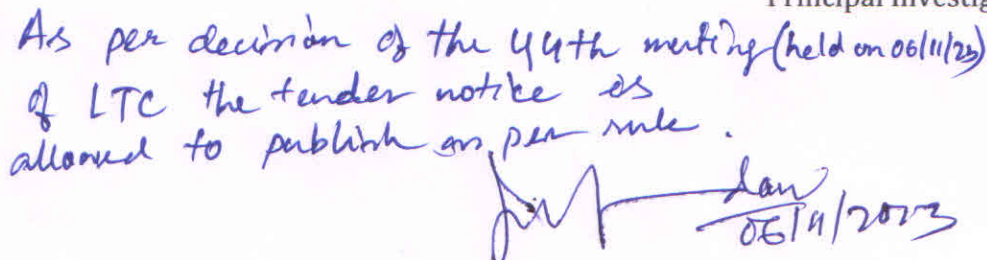 Principal Investig
As per decision of the 44th meeting (held on 06/11/23)
of LTC the tender notice is
allowed to publish as per rule.
06/11/2023